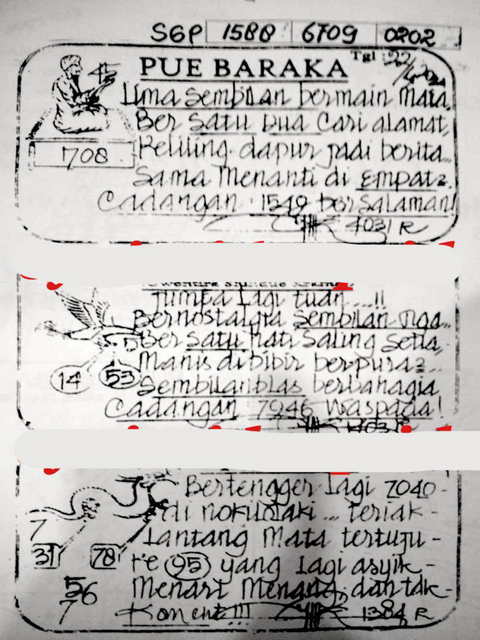 SGP 1588 6709 0202
PUE BARAKA Tgl 22
Lima Sembilan bermain Mata
Ber Satu Dua Cari alamat
708
Keliling dapur jadi berita
Sama Menanti di Empat2
Cadangan 1549 berSalaman!
4031 R
Jumpa Lagi tuan...!!
Bernostalgia Sembilan Nga..
5
Ber Satu hati Saling Setia
Manis dibibir berpura2
14 53
Sembilanblas berbahagia
Cadangan 7946 Waspada!
Bertengger Lagi 7040 -
di nokilalaki... teriak -
7
Lantang Mata tertuju -
31 78
ke 95 yang Lagi asyik -
56
Menari Menang, dan tak -
7
Koment!!! 1384 R